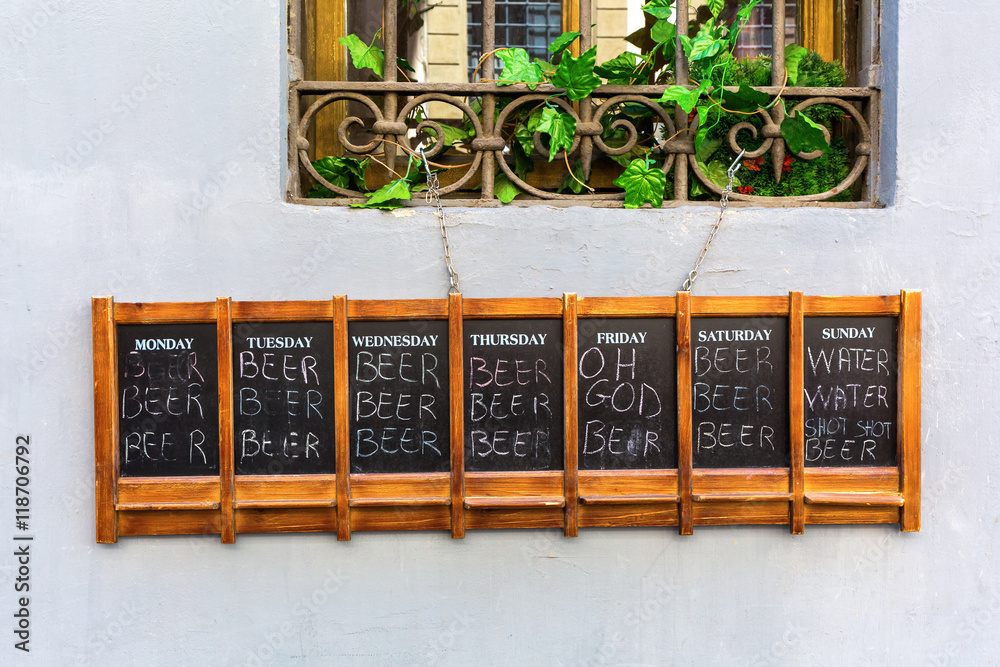 MONDAY
BEER
BEER
BEER
TUESDAY
BEER
BEER
BEER
WEDNESDAY
BEER
BEER
BEER
THURSDAY
BEER
BEER
BEER
FRIDAY
OH
GOD
BEER
SATURDAY
BEER
BEER
BEER
SUNDAY
WATER
WATER
SHOT SHOT
BEER
Adobe Stock | #118706792